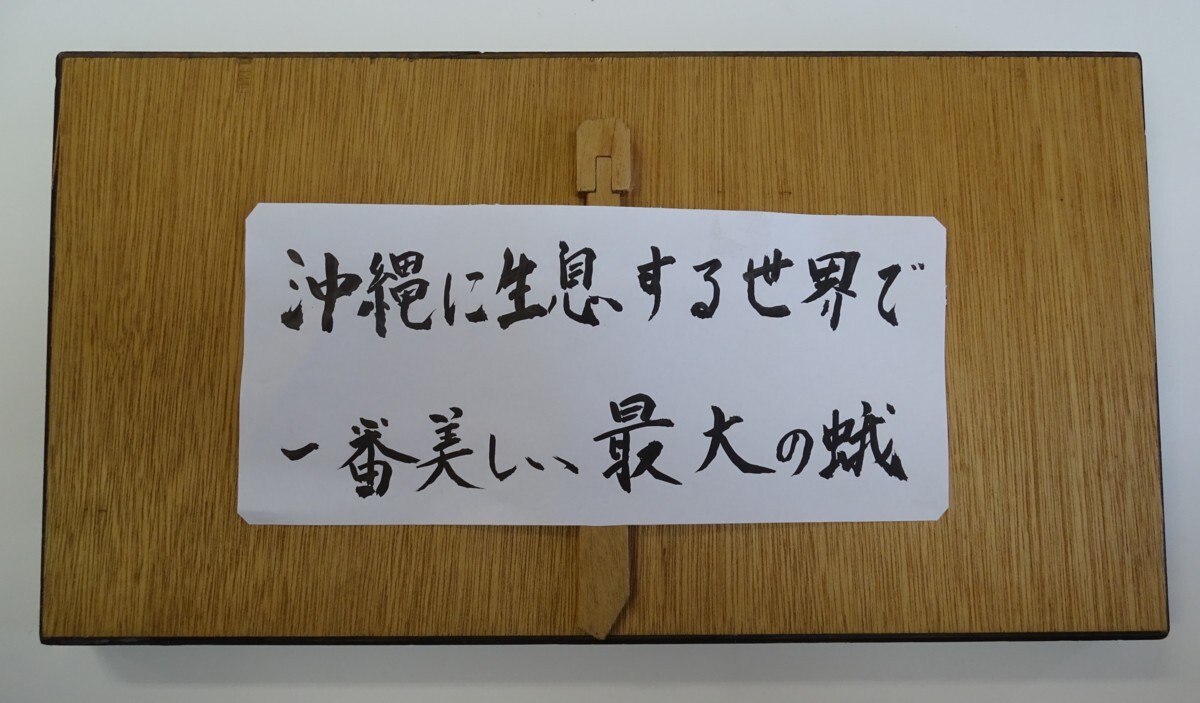 沖縄に生息する世界で
一番美しい最大の蛾